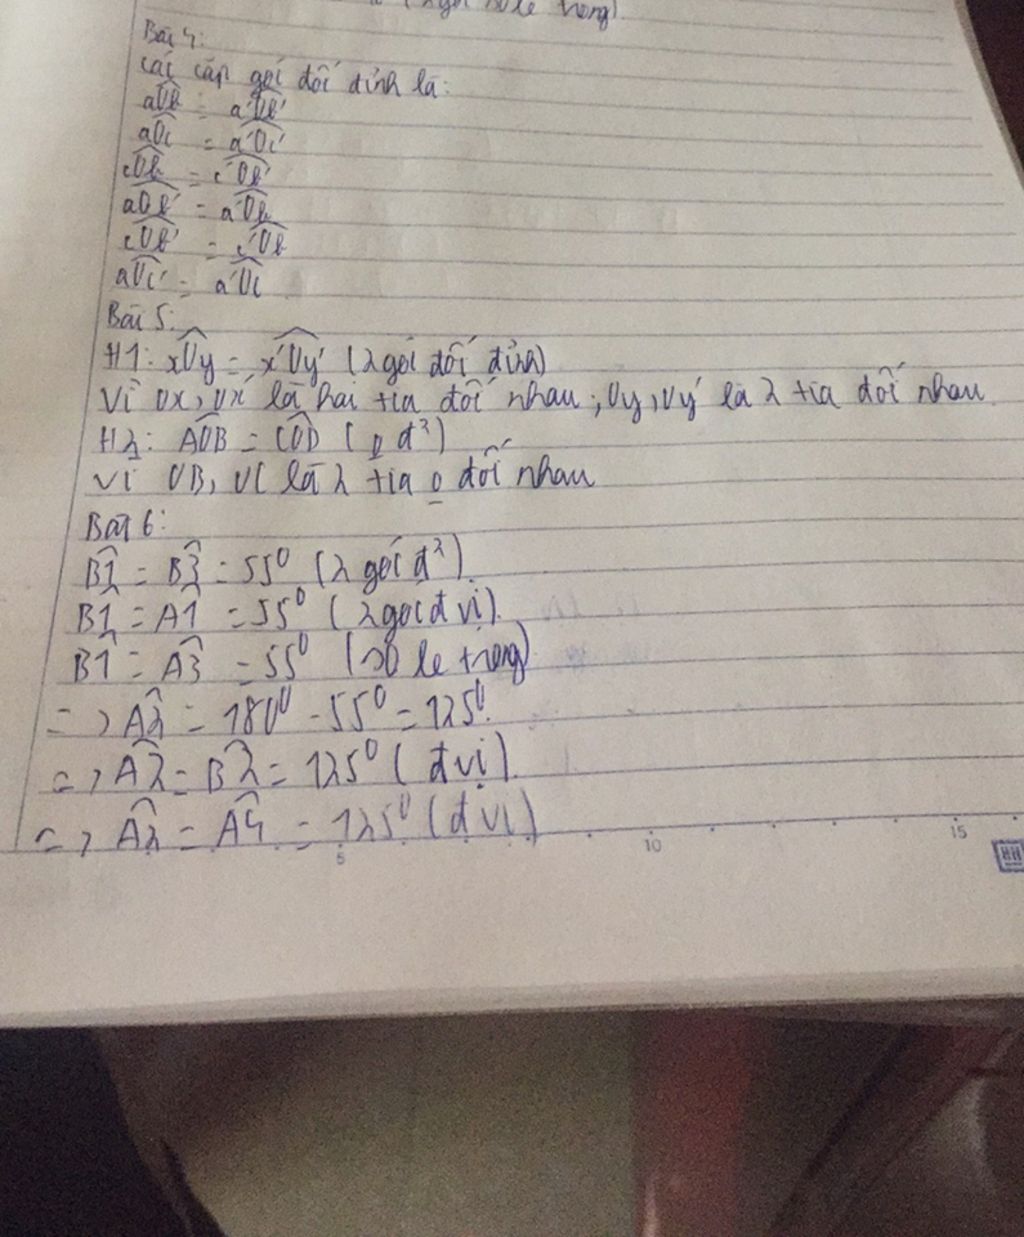 (2 góc so le trong)
Bài 4:
các cặp góc đối đỉnh là:
aOb = a'Ob'
aOc = a'Oc'
cOb = c'Ob'
aOb' = a'Ob
cOb' = c'Ob
aOc' = a'Oc
Bài 5:
H1: xOy = x'Oy' (2 góc đối đỉnh)
Vì Ox, Ox' là hai tia đối nhau; Oy, Oy' là 2 tia đối nhau
H2: AOB = COD ( đ²)
Vì OB, OC là 2 tia o đối nhau
Bài 6:
B1 = B3 = 55⁰ (2 góc đ²).
B1 = A1 = 55⁰ (2 góc đ vị).
B1 = A3 = 55⁰ (so le trong)
=> A2 = 180⁰ - 55⁰ = 125⁰.
=> A2 = B2 = 125⁰ (đ vị).
=> A2 = A4 = 125⁰ (đ vị)
5 10 15